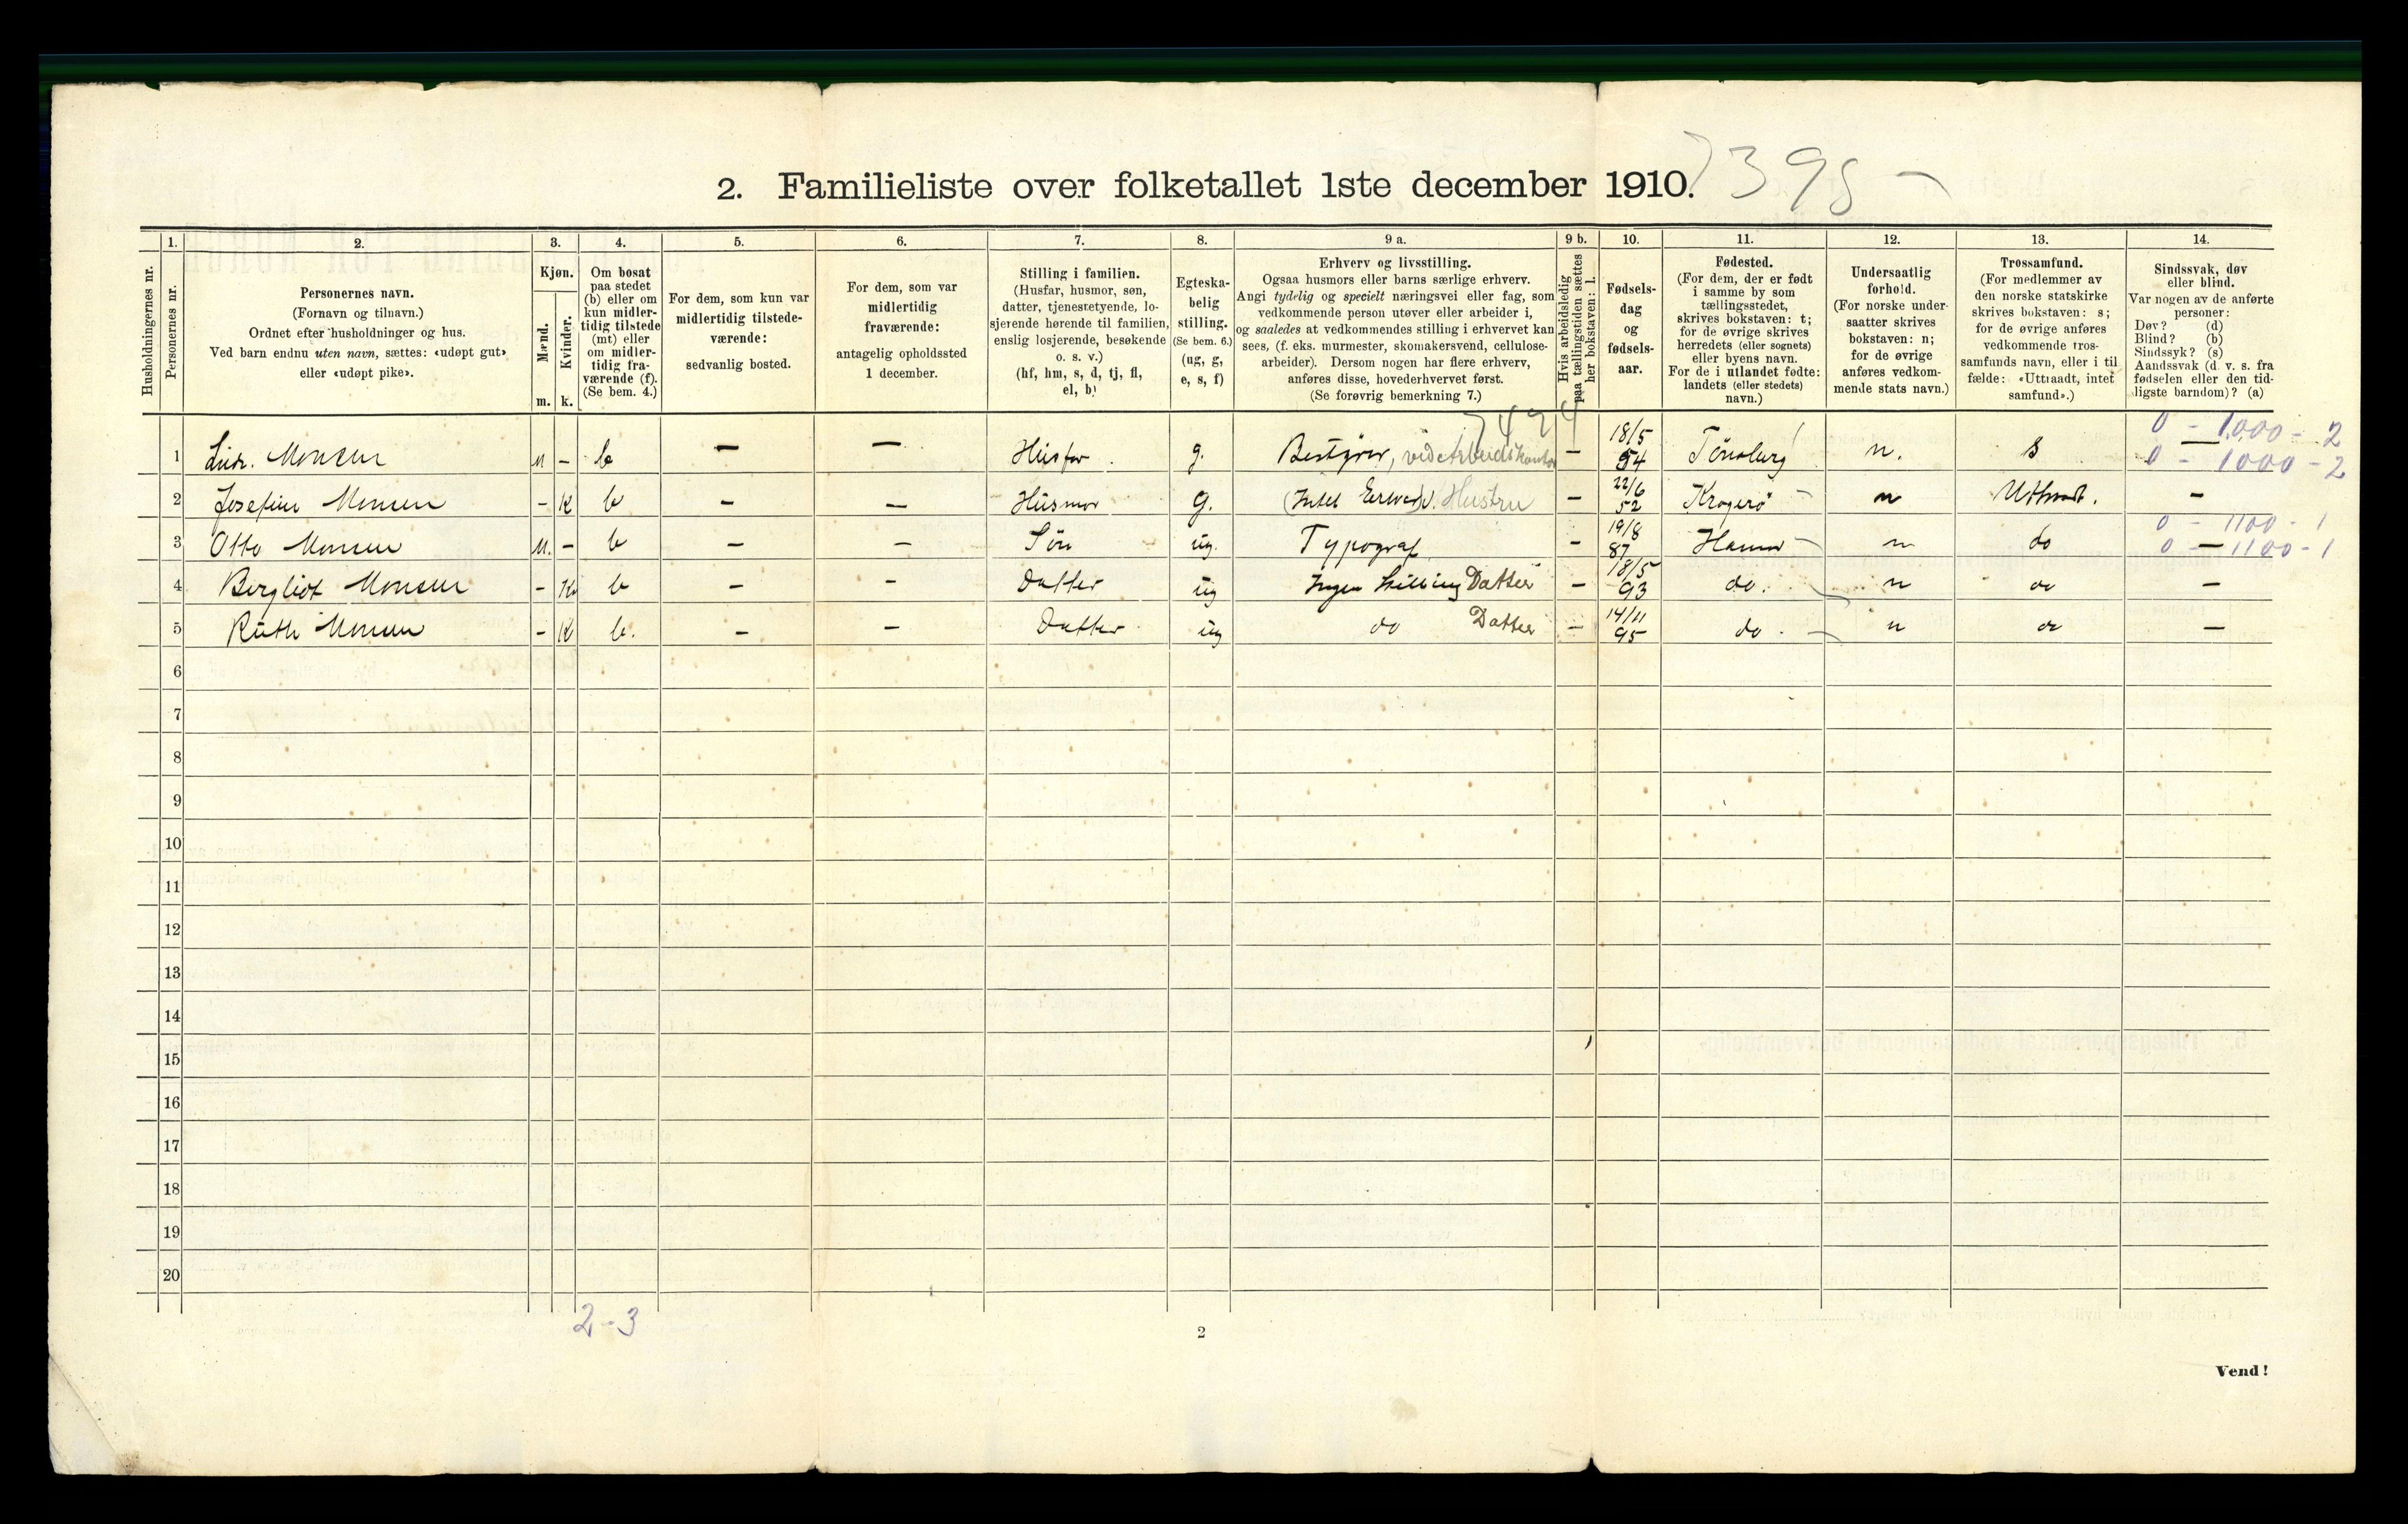 7395 -
2. Familieliste over folketallet 1ste december 1910.
Husholdningernes nr.
1.
Personernes nr.
2.
Personernes navn.
(Fornavn og tilnavn.)
Ordnet efter husholdninger og hus.
Ved barn endnu uten navn, sættes: «udøpt gut»
eller «udøpt pike».
3.
Kjøn.
Mænd.
Kvinder.
m. k.
4.
Om bosat
paa stedet
(b) eller om
kun midler-
tidig tilstede
(mt) eller
om midler-
tidig fra-
værende (f).
(Se bem. 4.)
5.
For dem, som kun var
midlertidig tilstede-
værende:
sedvanlig bosted.
6.
For dem, som var
midlertidig
fraværende:
antagelig opholdssted
1 december.
7.
Stilling i familien.
(Husfar, husmor, søn,
datter, tjenestetyende, lo-
sjerende hørende til familien,
enslig losjerende, besøkende
o. s. v.)
(hf, hm, s, d, tj, fl,
el, b)
8.
Egteska-
belig
stilling.
(Se bem. 6.)
(ug, g,
e, s, f)
9 a.
Erhverv og livsstilling.
Ogsaa husmors eller barns særlige erhverv.
Angi tydelig og specielt næringsvei eller fag, som
vedkommende person utøver eller arbeider i,
og saaledes at vedkommendes stilling i erhvervet kan
sees, (f. eks. murmester, skomakersvend, cellulose-
arbeider). Dersom nogen har flere erhverv,
anføres disse, hovederhvervet først.
(Se forøvrig bemerkning 7.)
9 b.
Hvis arbeidsledig
paa tællingstiden sættes
her bokstaven: l.
10.
Fødsels-
dag
og
fødsels-
aar.
11.
Fødested.
(For dem, der er født
i samme by som
tællingsstedet,
skrives bokstaven: t;
for de øvrige skrives
herredets (eller sognets)
eller byens navn.
For de i utlandet fødte:
landets (eller stedets)
navn.)
12.
Undersaatlig
forhold.
(For norske under-
saatter skrives
bokstaven: n;
for de øvrige
anføres vedkom-
mende stats navn.)
13.
Trossamfund.
(For medlemmer av
den norske statskirke
skrives bokstaven: s;
for de øvrige anføres
vedkommende tros-
samfunds navn, eller i til
fælde: «Uttraadt, intet
samfund».)
14.
Sindssvak, døv
eller blind.
Var nogen av de anførte
personer:
Døv? (d)
Blind? (b)
Sindssyk? (s)
Aandssvak (d. v. s. fra
fødselen eller den tid-
ligste barndom)? (a)
7494
0 - 1000 - 2
1 Ludv. Monsen M - b — — Husfar g. Bestyrer, ved Arbeidskontor — 18/5 54 Tønsberg n. s —
0 - 1000 - 2
2 Josefine Monsen - K b — — Husmor g. (Intet Erhverv). Hustru — 22/6 52 Kragerø n Uttraadt. —
0 - 1100 - 1
3 Otto Monsen M. - b — — Søn ug. Typograf - 19/8 87 Hamar n do —
0 - 1100 - 1
4 Bergliot Monsen - K b - - Datter ug Ingen Stilling Datter - 18/5 93 do. n do —
5 Ruth Monsen - K b. - - Datter ug do Datter - 14/11 95 do. n do —
6
7
8
9
10
11
12
13
14
15
16
17
18
19
20
2 - 3
2
Vend!